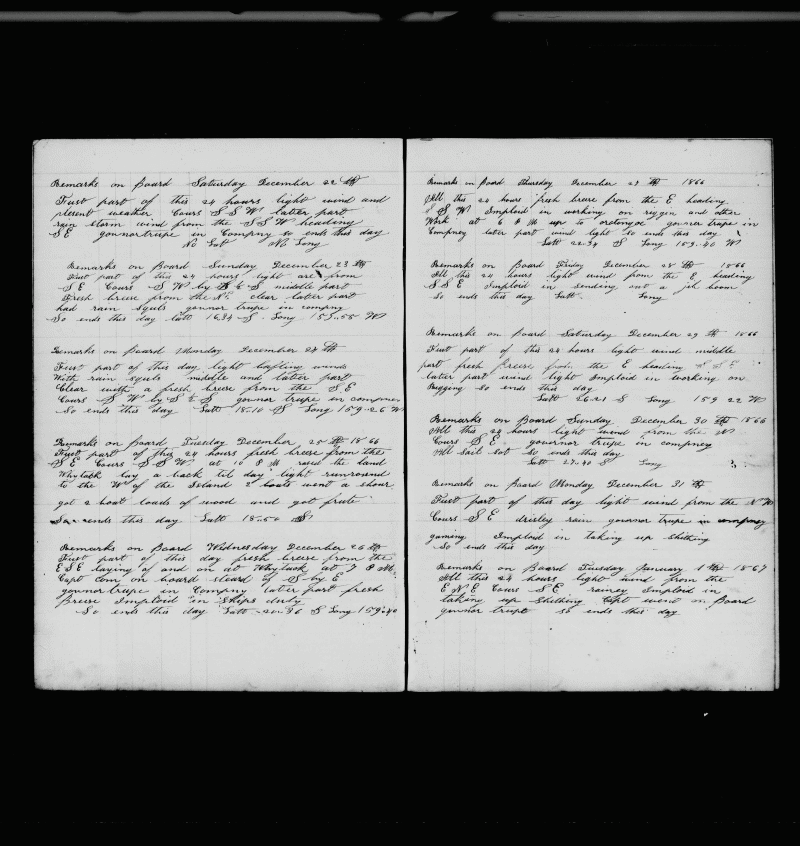 Remarks on Board Saturday December 22 th
First part of this 24 hours light wind and
plesent weather Cours S S W latter part
rain storm wind from the S S W heading
S E gonnortrupe in Compny so ends this day
No Latt No Long
Remarks on Board Sunday December 23 th
First part of this 24 hours light are from
S E Cours S W by S middle part
Fresh breese from the clear later part
had rain squls gonnor trupe in compny
So ends this day latt 16.34 S Long 155..55 W
Remarks on Board Monday December 24 th
First part of this day light bafling winds
With rain squls middle and latter part
Clear with a fresh breese from the S E
Cours S W by S & S govnor trupe in compner
So ends this day Latt 18-10 S Long 159-26 W
Remarks on Board Tuesday December 25 th 1866
First part of this 24 hours fresh breese from the
S E Cours S S W at 10 P M rased the land
Whytack lay a back til day light runround
to the W of the Island 2 boats went a shour
got 2 boat loads of wood and got frute
So ends this day Latt 18..50 S
Remarks on Board Wednesday December 26 th
First part of this day fresh breese from the
E S E laying of and on at Whytack at 7 P M
Capt com on board steard of S by E
govnortrupe in Compny later part fresh
Breese Imploid in Ships duty
So ends this day Latt 20..36 S Long 159..40
Remarks on Board Thursday December 27 th 1866
All this 24 hours fresh breese from the E heading
S S W Imploid in working on rigin and other
Work at 6 P M up to govnor trupe in
Compney later part wind light so ends this day
Latt 22.34 S Long 159.40 W
Remarks on Board Friday December 28 th 1866
All this 24 hours light wind from the E heading
S S E Imploid in sending out a jeb boom
So ends this day Latt. Long
Remarks on Board Saturday December 29 th 1866
First part of this 24 hours light wind middle
part fresh Breese from the E heading S S E
latter part wind light Imploid in working on
Rigging So ends this day
Latt 26.21 S Long 159 22 W
Remarks on Board Sunday December 30 th 1866
All this 24 hours light wind from the N
Cours S E gouvnor trupe in compney
All Sail Sot So ends this day
Latt 27.40 S Long
Remarks on Board Monday December 31 th
First part of this day light wind from the N W
Cours S E drisley rain gouvnor trupe in compney
gaming Imploid in taking up Shething
So ends this day
Remarks on Board Tuesday January 1 th 1867
All this 24 hours light wind from the
E N E Cours S E rainey Imploid in
taking up Shething Capt went on Board
govnor trupe so ends this day